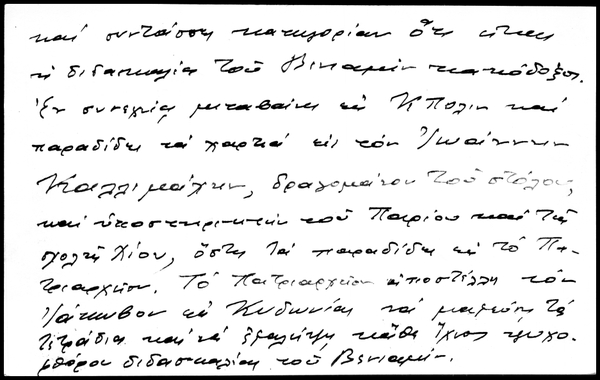 καί συντάσση κατηγορίαν ὅτι εἶναι
ἡ διδασκαλία τοῦ Βενιαμίν κακόδοξος.
Ἐν συνεχείᾳ μεταβαίνει εἰς Κ/Πολιν καί
παραδίδει τά χαρτιά εἰς τόν Ἰωάννην
Καλλιμάχην, δραγομάνον τοῦ στόλου,
καί ὑποστηρικτήν τοῦ Παρίου καί τῆς
σχολῆς Χίου, ὅστις τά παραδίδει εἰς τό Πα-
τριαρχεῖον. Τό Πατριαρχεῖον ἀποστέλλει τόν
Ἰάκωβον εἰς Κυδωνίας νά μαζεύση τά
τετράδια καί νά ἐξαλείψη κάθε ἴχνος ψυχο-
φθόρου διδασκαλίας τοῦ Βενιαμίν.